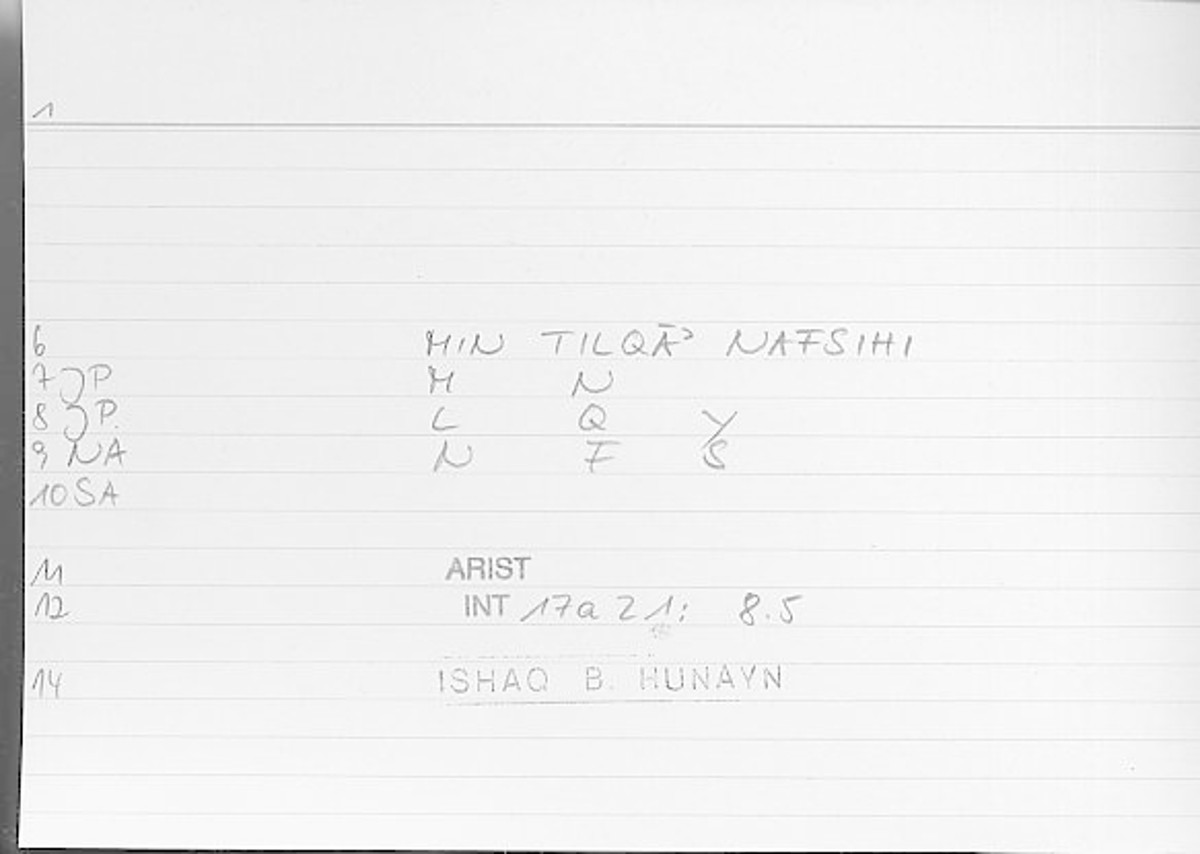 1
6 MIN TILQĀʾ NAFSIHI
7 P M N
8 P. L Q Y
9 NA N F S
10 SA
11 ARIST
12 INT 17a21: 8.5
14 ISHAQ B. HUNAYN